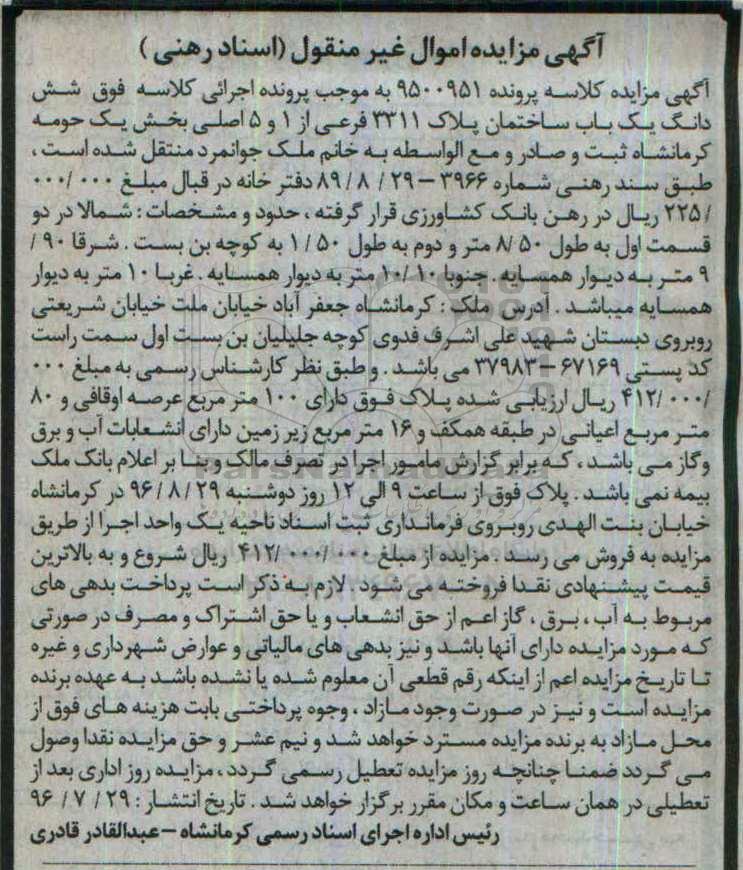 آگهی مزایده اموال غیر منقول (اسناد رهنی )
آگهی مزایده کلاسه پرونده ۹۵۰۰۹۵۱ به موجب پرونده اجرائی کلاسه فوق شش
دانگ یک باب ساختمان پلاک ۳۳۱۱ فرعی از ۱ و ۵ اصلی بخش یک حومه
کرمانشاه ثبت و صادر و مع الواسطه به خانم ملک جوانمرد منتقل شده است ،
طبق سند رهنی شماره ۳۹۶۶ – ۲۹ / ۸ / ۸۹ دفتر خانه در قبال مبلغ ۰۰۰/ ۰۰۰
/ ۲۲۵ ریال در رهن بانک کشاورزی قرار گرفته ، حدود و مشخصات : شمالا در دو
قسمت اول به طول ۵۰ /۸ متر و دوم به طول ۵۰ / ۱ به کوچه بن بست . شرقا ۹۰ /
۹ متر به دیوار همسایه . جنوبا ۱۰ /۱۰ متر به دیوار همسایه . غربا ۱۰ متر به دیوار
همسایه میباشد . آدرس ملک : کرمانشاه جعفر آباد خیابان ملت خیابان شریعتی
روبروی دبستان شهید علی اشرف فدوی کوچه جلیلیان بن بست اول سمت راست
کد پستی ۶۷۱۶۹ – ۳۷۹۸۳ می باشد . و طبق نظر کارشناس رسمی به مبلغ ۰۰۰
/ ۰۰۰/ ۴۱۲ ریال ارزیابی شده پلاک فوق دارای ۱۰۰ متر مربع عرصه اوقافی و ۸۰
متر مربع اعیانی در طبقه همکف و ۱۶ متر مربع زیر زمین دارای انشعابات آب و برق
وگاز می باشد ، که برابر گزارش مامور اجرا در تصرف مالک و بنا بر اعلام بانک ملک
بیمه نمی باشد . پلاک فوق از ساعت ۹ الی ۱۲ روز دوشنبه ۲۹ / ۸ / ۹۶ در کرمانشاه
خیابان بنت الهدی روبروی فرمانداری ثبت اسناد ناحیه یک واحد اجرا از طریق
مزایده به فروش می رسد . مزایده از مبلغ ۰۰۰/ ۰۰۰/ ۴۱۲ ریال شروع و به بالاترین
قیمت پیشنهادی نقدا فروخته می شود . لازم به ذکر است پرداخت بدهی های
مربوط به آب ، برق ، گاز اعم از حق انشعاب و یا حق اشتراک و مصرف در صورتی
که مورد مزایده دارای آنها باشد و نیز بدهی های مالیاتی و عوارض شهرداری و غیره
تا تاریخ مزایده اعم از اینکه رقم قطعی آن معلوم شده یا نشده باشد به عهده برنده
مزایده است و نیز در صورت وجود مازاد ، وجوه پرداختی بابت هزینه های فوق از
محل مازاد به برنده مزایده مسترد خواهد شد و نیم عشر و حق مزایده نقدا وصول
می گردد ضمنا چنانچه روز مزایده تعطیل رسمی گردد ، مزایده روز اداری بعد از
تعطیلی در همان ساعت و مکان مقرر برگزار خواهد شد . تاریخ انتشار : ۲۹ / ۷ / ۹۶
رئیس اداره اجرای اسناد رسمی کرمانشاه – عبدالقادر قادری